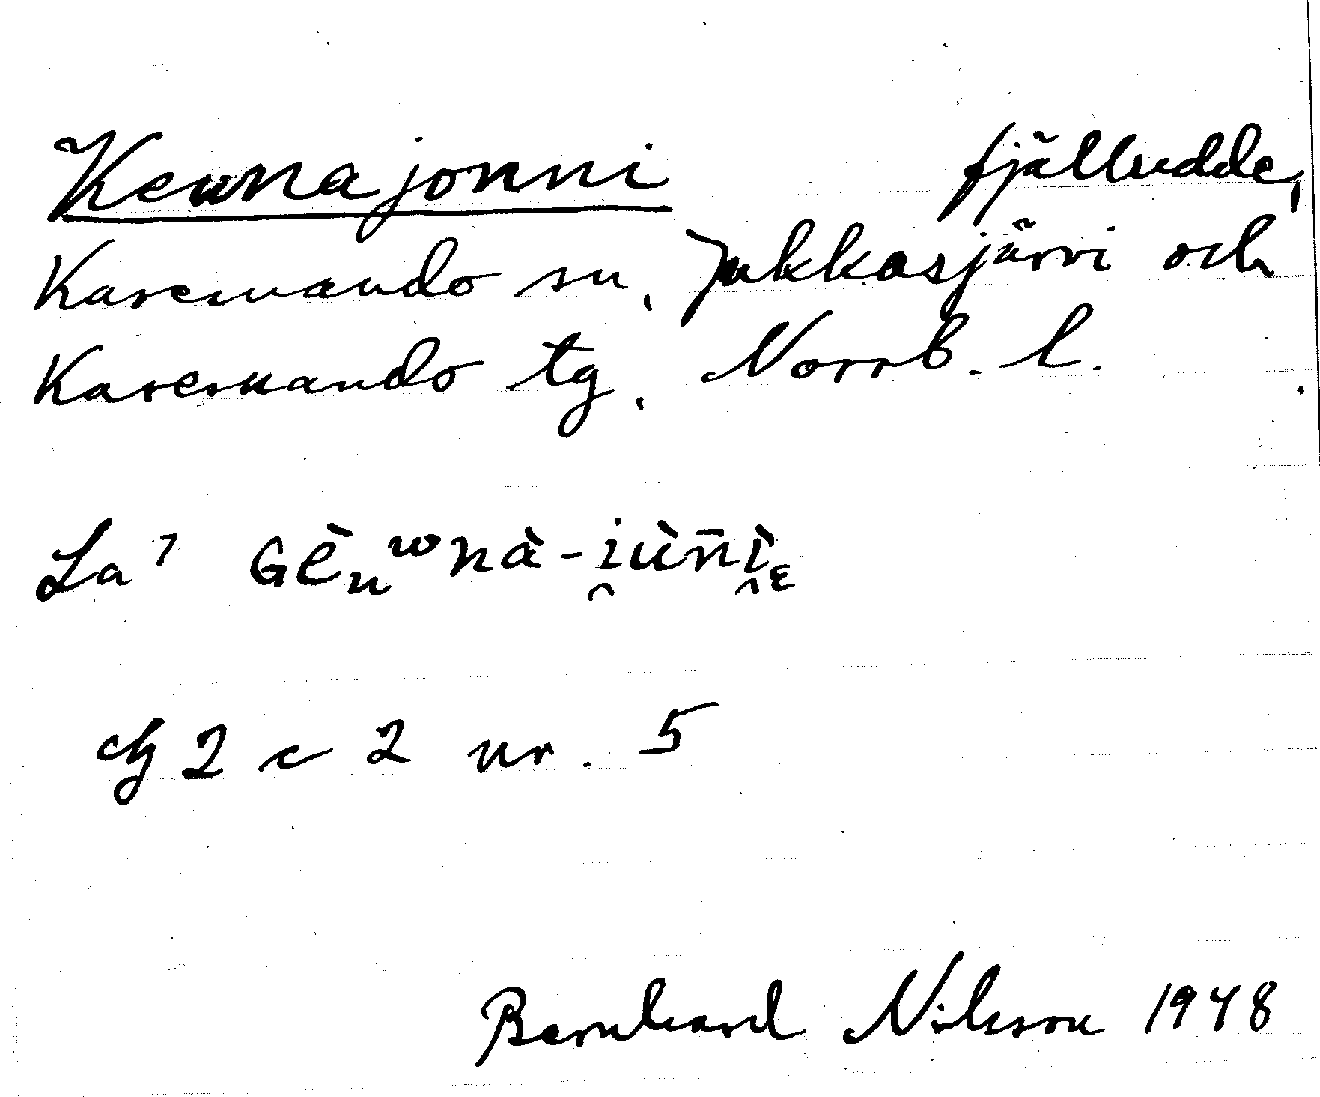 Kewnajonni fjälludde,
Karesuando sn, Jukkasjärvi och
Karesuando tg, Norrb. l.
La⁷ Gèᵤʷnà-i̯ùn̄ì̯ᵋ
dg 2 c 2 nr. 5
Bernhard Nilsson 1948